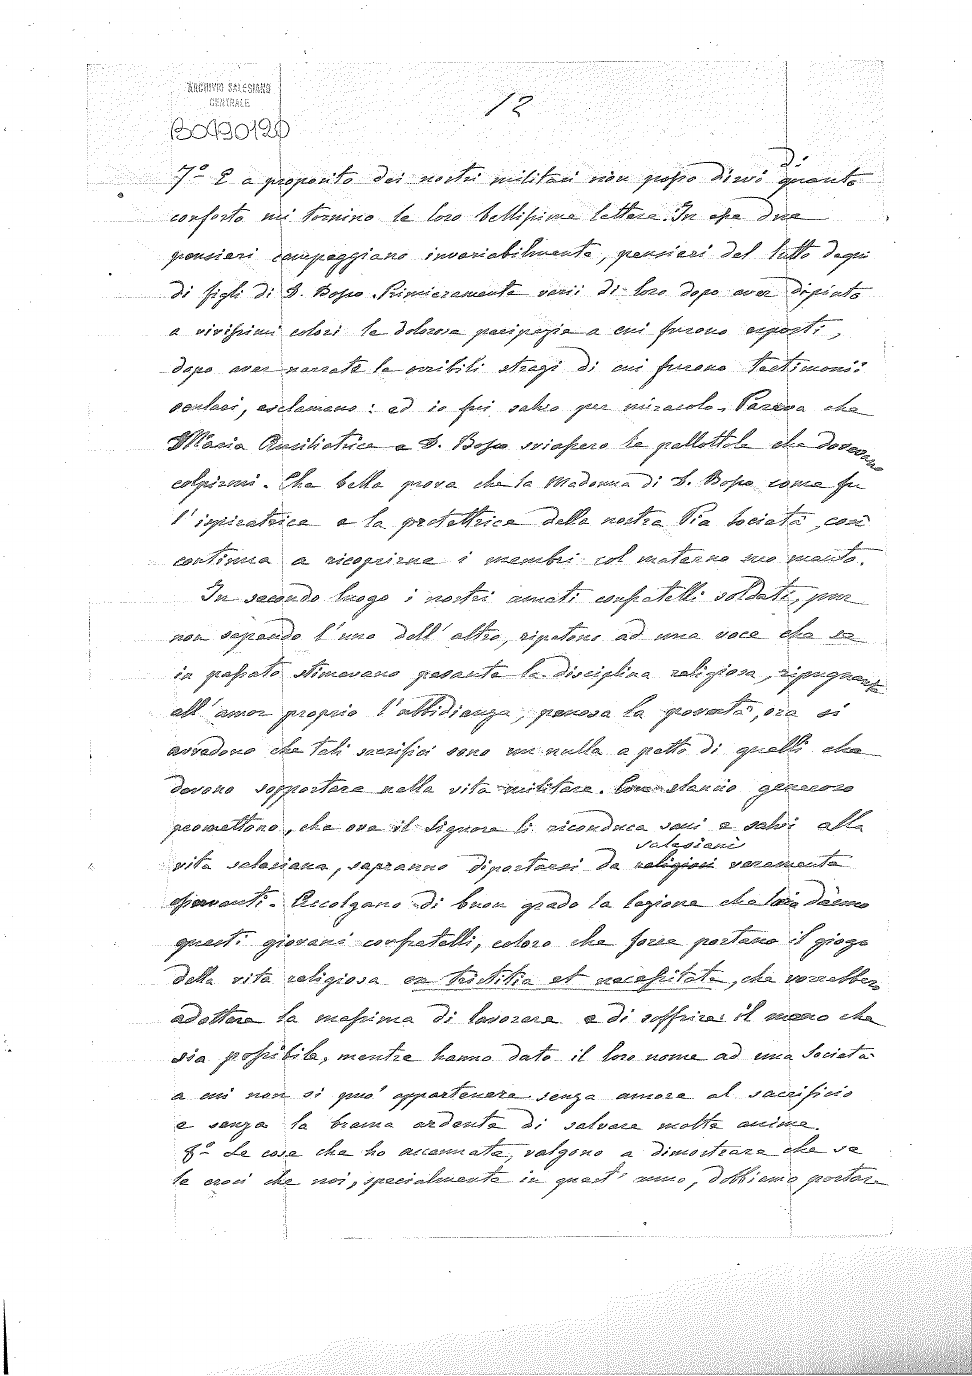 ARCHIVIO SALESIANO
CENTRALE
B0490120
12
7º E a proposito dei nostri militari non posso dirvi di quanto
conforto mi tornino le loro bellissime lettere. In esse due
pensieri campeggiano invariabilmente, pensieri del tutto degni
di figli di D. Bosco. Primieramente varii di loro dopo aver dipinto
a vivissimi colori le dolorose peripezie a cui furono esposti,
dopo aver narrate le orribili stragi di cui furono testimonii
oculari, esclamano: ed io fui salvo per miracolo. Pareva che
Maria Ausiliatrice e D. Bosco sviassero le pallottole che dovevano
colpirmi. Che bella prova che la Madonna di D. Bosco come fu
l'ispiratrice e la protettrice della nostra Pia Società, così
continua a ricoprirne i membri col materno suo manto.
In secondo luogo i nostri amati confratelli soldati, pur
non sapendo l'uno dell'altro, ripetono ad una voce che se
in passato stimavano pesante la disciplina religiosa, ripugnante
all'amor proprio l'ubbidienza, penosa la povertà, ora si
avvedono che tali sacrifici sono un nulla a petto di quelli che
devono sopportare nella vita militare. Con slancio generoso
promettono, che ove il Signore li riconduca sani e salvi alla
vita salesiana, sapranno diportarsi da religiosi salesiani veramente
osservanti. Accolgano di buon grado la lezione che loro dànno
questi giovani confratelli, coloro che forse portano il giogo
della vita religiosa ex tristitia et necessitate, che vorrebbero
adottare la massima di lavorare e di soffrire il meno che
sia possibile, mentre hanno dato il loro nome ad una Società
a cui non si può appartenere senza amore al sacrificio
e senza la brama ardente di salvare molte anime.
8º Le cose che ho accennate, valgono a dimostrare che se
le croci che noi, specialmente in quest'anno, dobbiamo portare